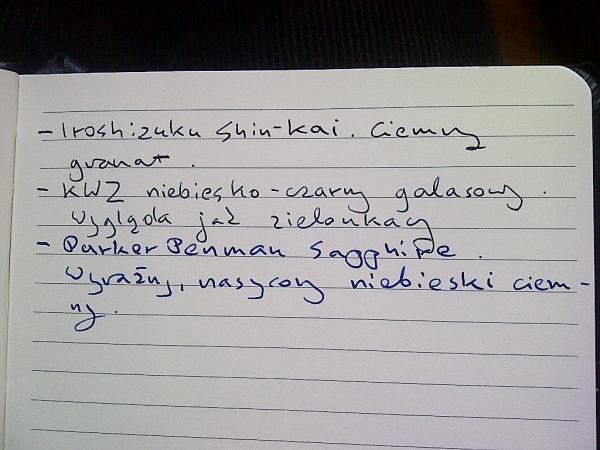 - Iroshizuku Shin-kai. Ciemny
granat.
- KWZ niebiesko-czarny galasowy.
Wygląda jak zielonkawy
- Parker Penman Sapphire.
Wyraźny, nasycony niebieski ciem-
ny.